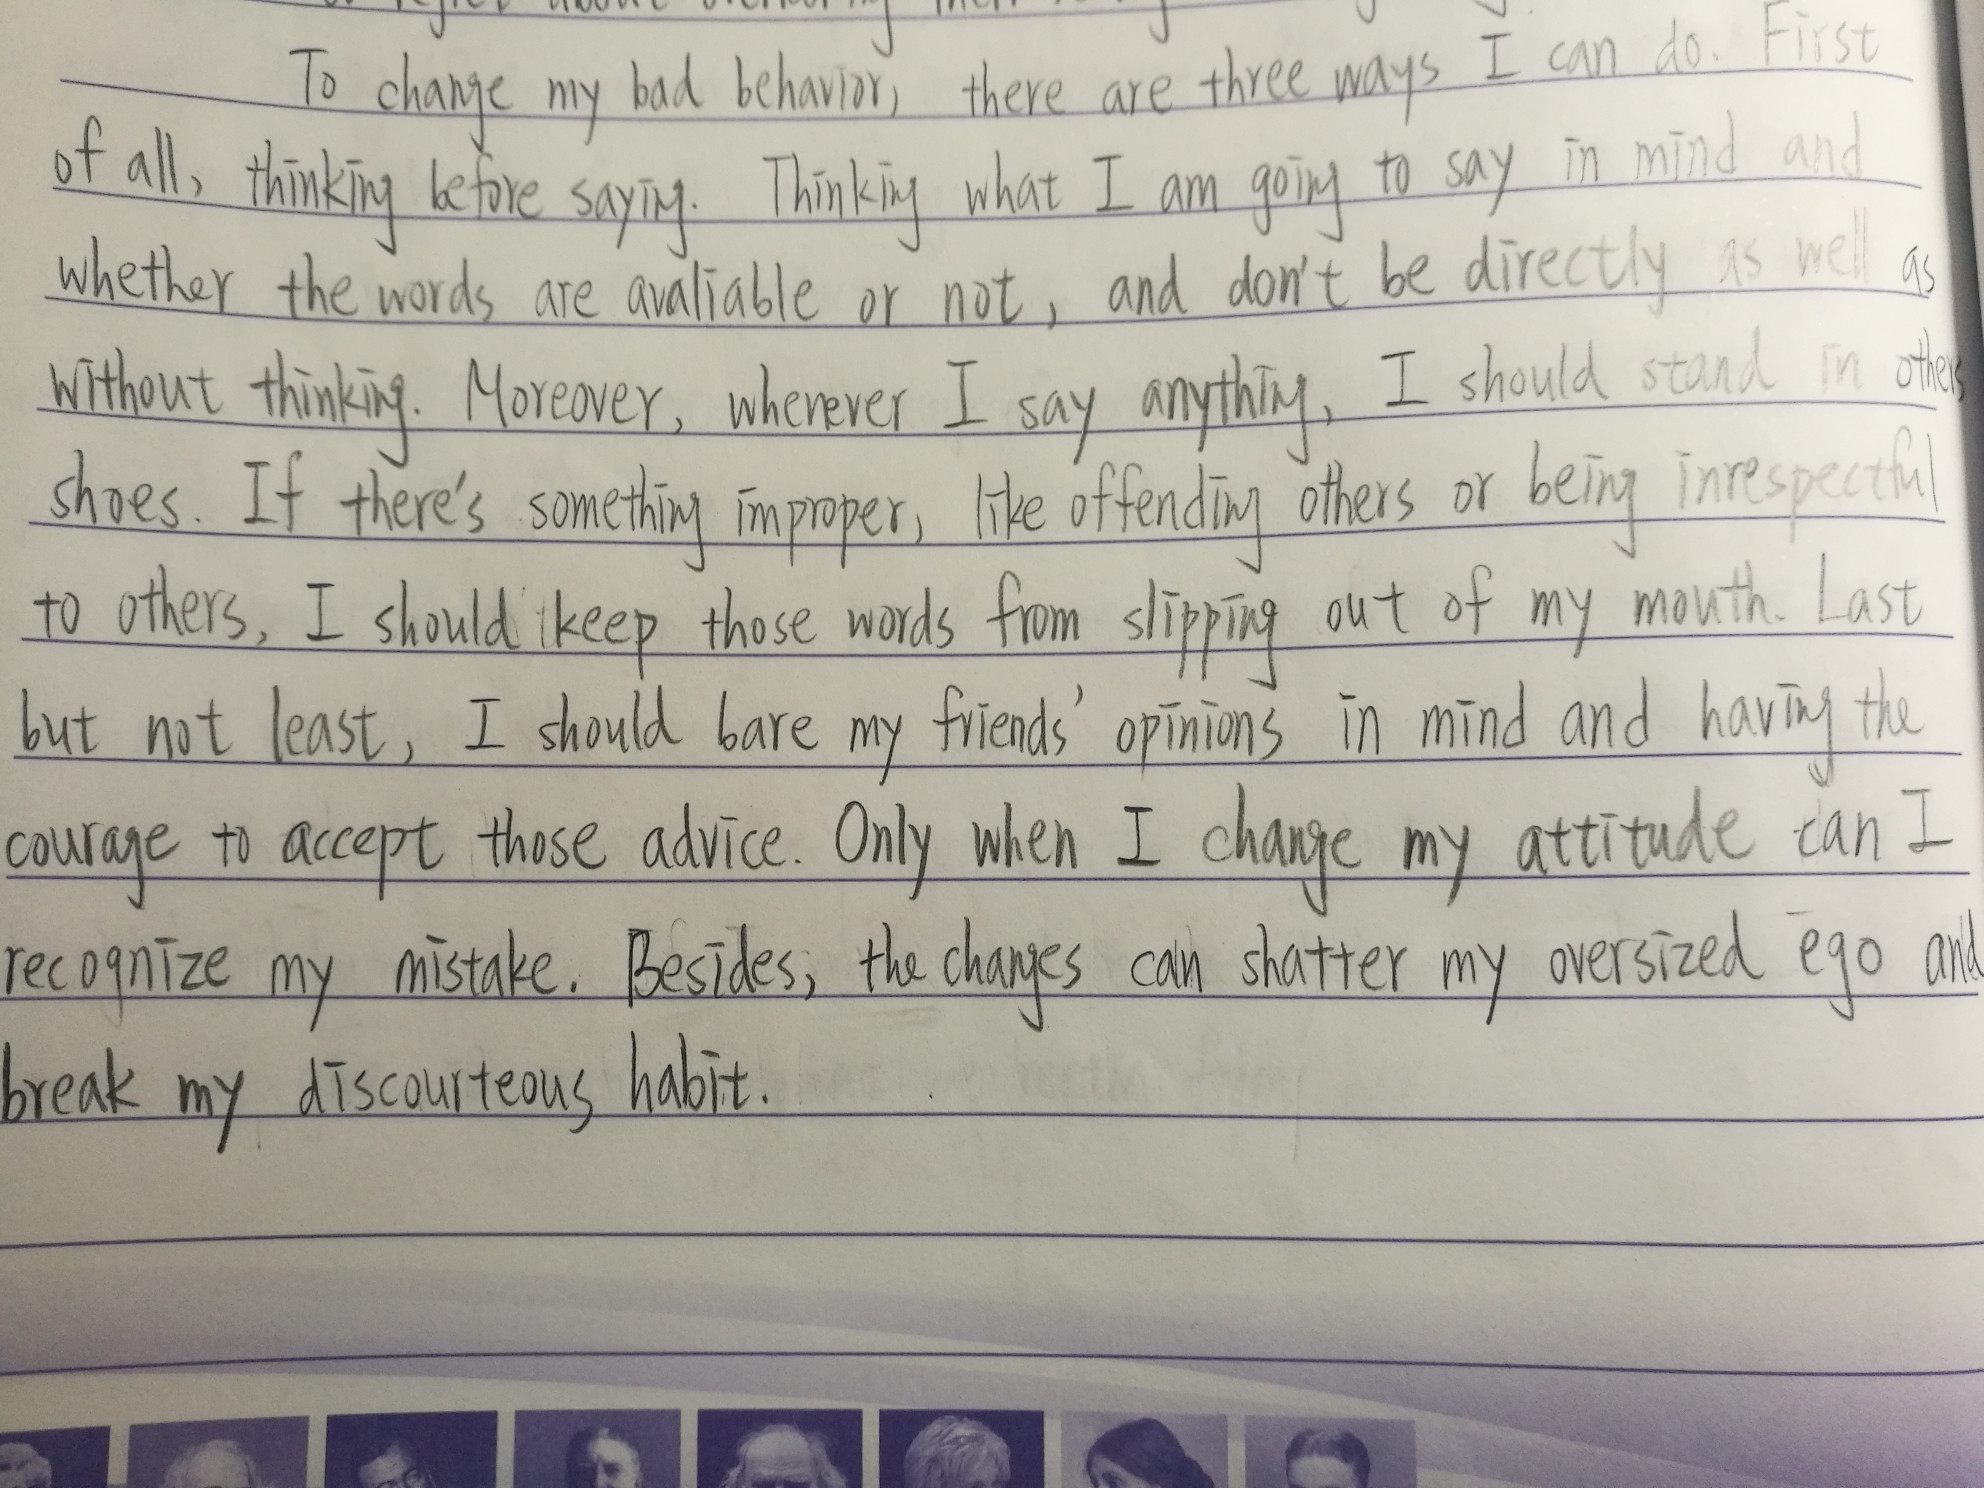 about
To change my bad behavior, there are three ways I can do. First
of all, thinking before saying. Thinking what I am going to say in mind and
whether the words are avaliable or not, and don't be directly as well as
without thinking. Moreover, whenever I say anything, I should stand in others
shoes. If there's something improper, like offending others or being inrespectful
to others, I should keep those words from slipping out of my mouth. Last
but not least, I should bare my friends' opinions in mind and having the
courage to accept those advice. Only when I change my attitude can I
recognize my mistake. Besides, the changes can shatter my oversized ego and
break my discourteous habit.